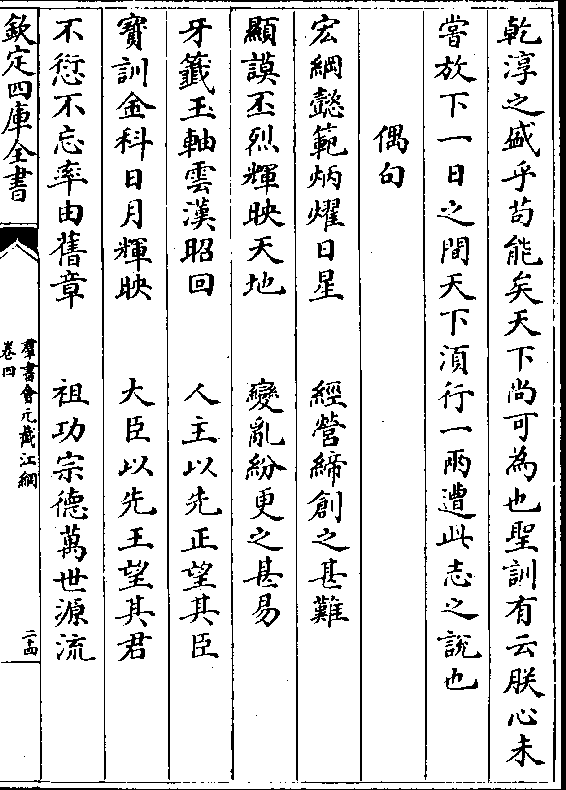 乾淳之盛乎苟能矣天下尚可為也聖訓有云朕心未
嘗放下一日之間天下湏行一兩遭此志之說也
偶句
宏綱懿範炳燿日星　經營締創之甚難
顯謨丕烈輝映天地　變亂紛更之甚易
牙籤玉軸雲漢昭回　人主以先正望其臣
寳訓金科日月輝映　大臣以先王望其君
不愆不忘率由舊章　祖功宗德萬世源流
欽定四庫全書
羣書會元截江網
卷四
二十四